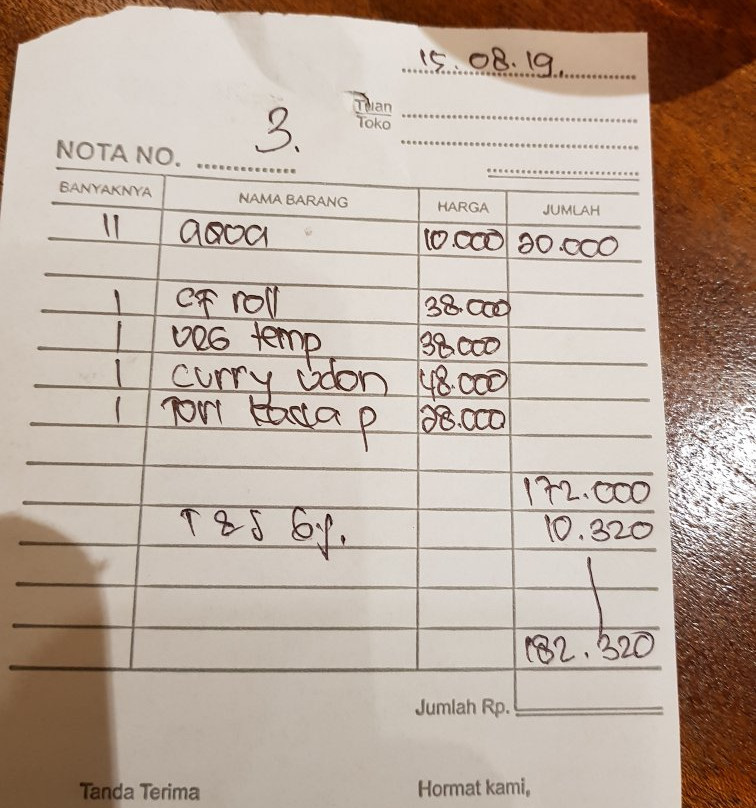 15.08.19.
Tuan
Toko
NOTA NO. 3.
BANYAKNYA NAMA BARANG HARGA JUMLAH
11 aqua 10.000 20.000
1 CF roll 38.000
1 VEG temp 38.000
1 curry udon 48.000
1 Tori p 28.000
172.000
T & S 6%. 10.320
182.320
Jumlah Rp.
Tanda Terima Hormat kami,